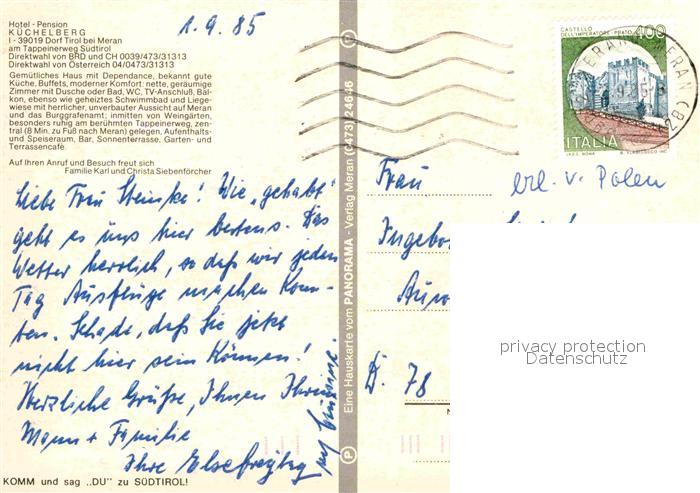 Hotel - Pension
KÜCHELBERG
I - 39019 Dorf Tirol bei Meran
am Tappeinerweg Südtirol
Direktwahl von BRD und CH 0039/473/31313
Direktwahl von Österreich 04/0473/31313
Gemütliches Haus mit Dependance, bekannt gute
Küche, Buffets, moderner Komfort: nette, geräumige
Zimmer mit Dusche oder Bad, WC, TV-Anschluß, Bal-
kon, ebenso wie geheiztes Schwimmbad und Liege-
wiese mit herrlicher, unverbauter Aussicht auf Meran
und das Burggrafenamt; inmitten von Weingärten,
besonders ruhig am berühmten Tappeinerweg, zen-
tral (8 Min. zu Fuß nach Meran) gelegen, Aufenthalts-
und Speiseraum, Bar, Sonnenterrasse, Garten- und
Terrassencafé.
Auf Ihren Anruf und Besuch freut sich
Familie Karl und Christa Siebenförcher
1.9.85
Liebe Frau Steinke! Wie „gehabt"
geht es uns hier bestens. Das
Wetter herrlich, so daß wir jeden
Tag Ausflüge machen konn-
ten. Schade, daß Sie jetzt
nicht hier sein können!
Herzliche Grüße, Ihnen Ihrem
Mann + Familie
Ihre
KOMM und sag „DU" zu SÜDTIROL!
Eine Hauskarte vom PANORAMA - Verlag Meran (0473) 24646
CASTELLO
DELL'IMPERATORE - PRATO
400
ITALIA
I.P.Z.S. ROMA
MERAN (BZ)
Frau
erl. v. Polen
D. 78
privacy protection
Datenschutz